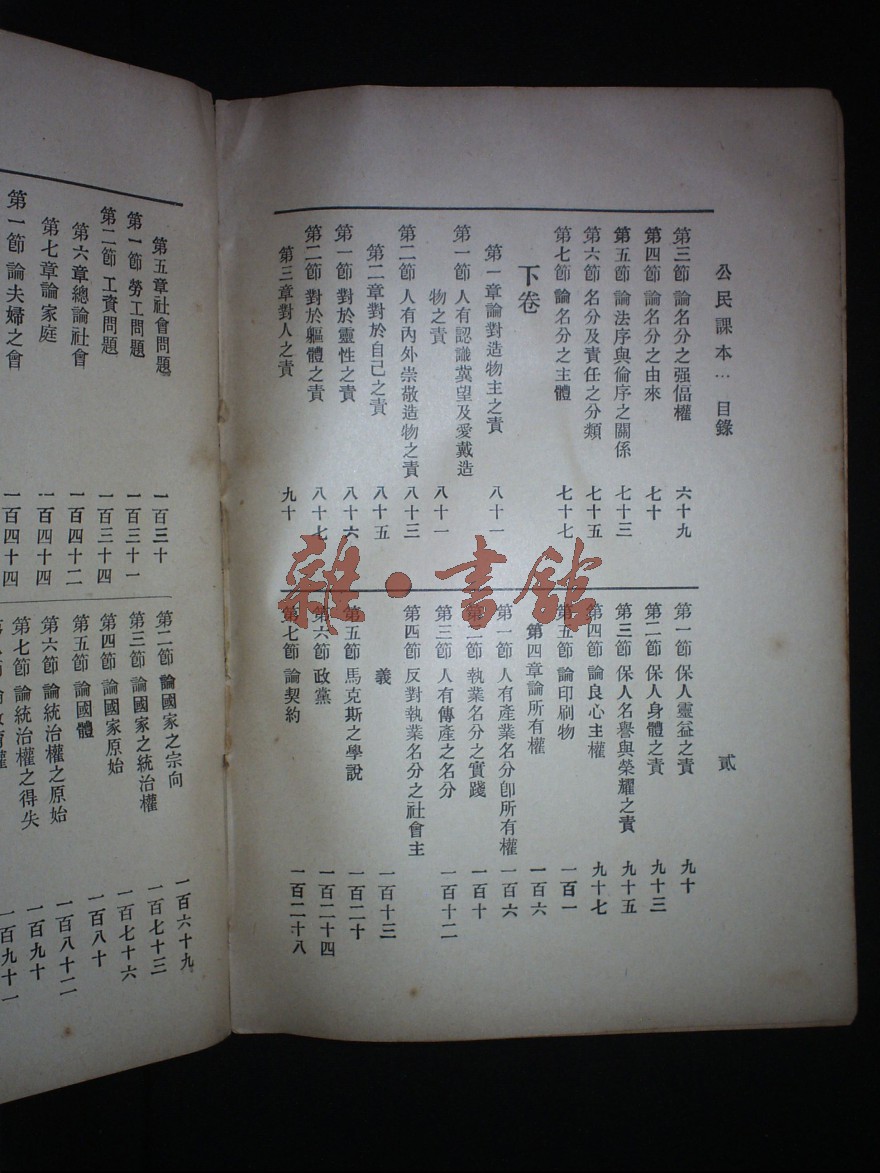 公民課本… 目錄 貳
第三節 論名分之强偪權 六十九
第四節 論名分之由來 七十
第五節 論法序與倫序之關係 七十三
第六節 名分及責任之分類 七十五
第七節 論名分之主體 七十七
下卷
第一章論對造物主之責 八十一
第一節 人有認識冀望及愛戴造
物之責 八十一
第二節 人有內外崇敬造物之責 八十三
第二章對於自己之責 八十五
第一節 對於靈性之責 八十六
第二節 對於軀體之責 八十七
第三章對人之責 九十
第一節 保人靈益之責 九十
第二節 保人身體之責 九十三
第三節 保人名譽與榮耀之責 九十五
第四節 論良心主權 九十七
第五節 論印刷物 一百一
第四章論所有權 一百六
第一節 人有產業名分卽所有權 一百六
第二節 執業名分之實踐 一百十
第三節 人有傳產之名分 一百十二
第四節 反對執業名分之社會主
義 一百十三
第五節 馬克斯之學說 一百二十
第六節 政黨 一百二十四
第七節 論契約 一百二十八
第五章社會問題 一百三十
第一節 勞工問題 一百三十一
第二節 工資問題 一百三十四
第六章總論社會 一百四十二
第七章論家庭 一百四十四
第一節 論夫婦之會 一百四十四
第二節 論國家之宗向 一百六十九
第三節 論國家之統治權 一百七十三
第四節 論國家原始 一百七十六
第五節 論國體 一百八十
第六節 論統治權之原始 一百八十二
第七節 論統治權之得失 一百九十
一百九十一
雜·書館